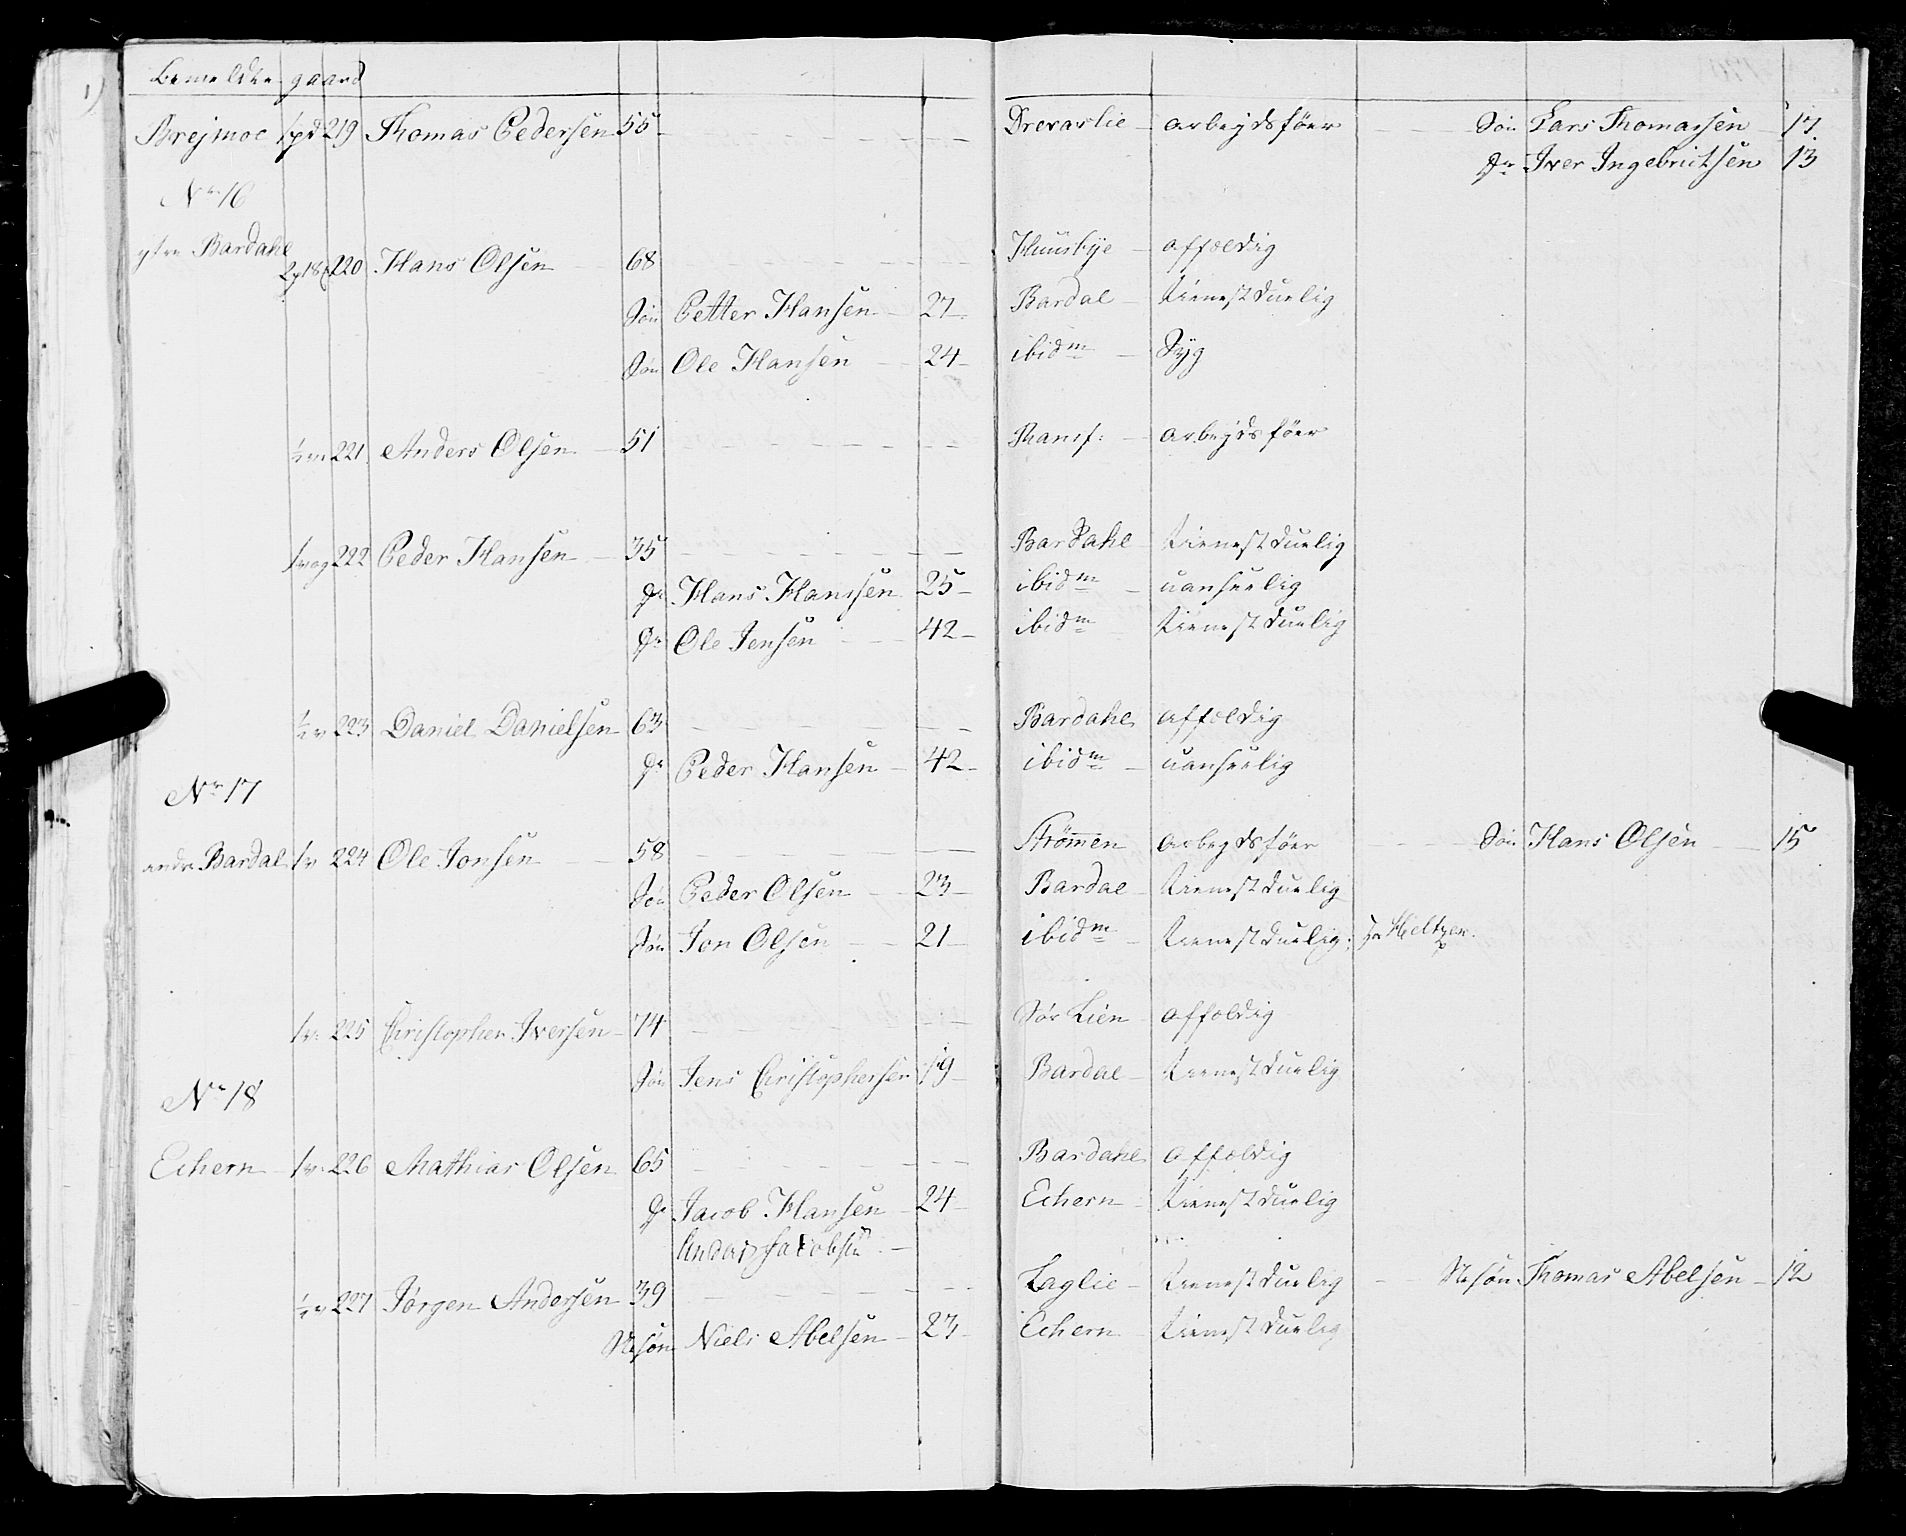 Bemeldte gaard
Brejmoe 1 pd 219 Thomas Pedersen 55 Drevaslie arbejdsföer Sön Lars Thomassen 17
Dr Iver Ingebrictsen 13
No 16
ytre Bardahl 220 Hans Olsen 68 Huusbye affældig
Sön Petter Hansen 27 Bardal tienestduelig
Sön Ole Hansen 24 ibidm Syg
221 Anders Olsen 51 Ransf: arbejdsföer
222 Peder Hansen 35 Bardahl tienestduelig
Dr Hans Hanssen 25 ibidm uanseelig
Dr Ole Jensen 42 ibidm tienestduelig
½ v 223 Daniel Danielsen 63 Bardahl affældig
Dr Peder Hansen 42 ibidm uanseelig
No 17
andr Bardal 1 v 224 Ole Jonsen 58 Strömen arbejdsföer Sön Hans Olsen 15
Sön Peder Olsen 23 Bardal tienestduelig
Sön Jon Olsen 21 ibidm tienestduelig;
1 v: 225 Christopher Iversen 74 Sör Lien affældig
Sön Jens Christophersen 19 Bardal tienestduelig
No 18
Echern 1 v: 226 Mathias Olsen 65 Bardahl affældig
Dr Jacob Hansen 24 Echern tienestduelig
Andas Jacobsen
½ v 227 Jörgen Andersen 39 Laglie tienestduelig St sön Thomas Abelsen 12
St sön Niels Abelsen 23 Echern tienestduelig